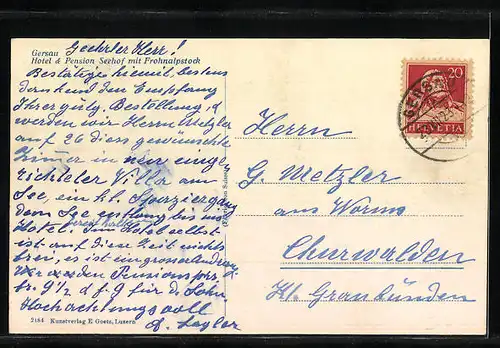 Gersau
Hotel & Pension Seehof mit Frohnalpstock
Geehrter Herr!
Bestätige hiemit, bestens
dankend den Empfang
Ihrer gütg. Bestellung, &
werden wir Herrn Metzler
auf 26 dies gewünschte
Zimer in neu einge
richteter Villa am
See, ein kl. Spaziergang
dem See entlang bis ins
Hotel. Im Hotel selbst
ist auf diese Zeit nichts
frei, es ist
den Pensionspreis
fr. 9 1/2 für d. Sohn
Hochachtungsvoll
2184 Kunstverlag E. Goetz, Luzern
20
HELVETIA
GERSAU
Herrn
G. Metzler
aus Worms
Churwalden
Kt. Graubünden